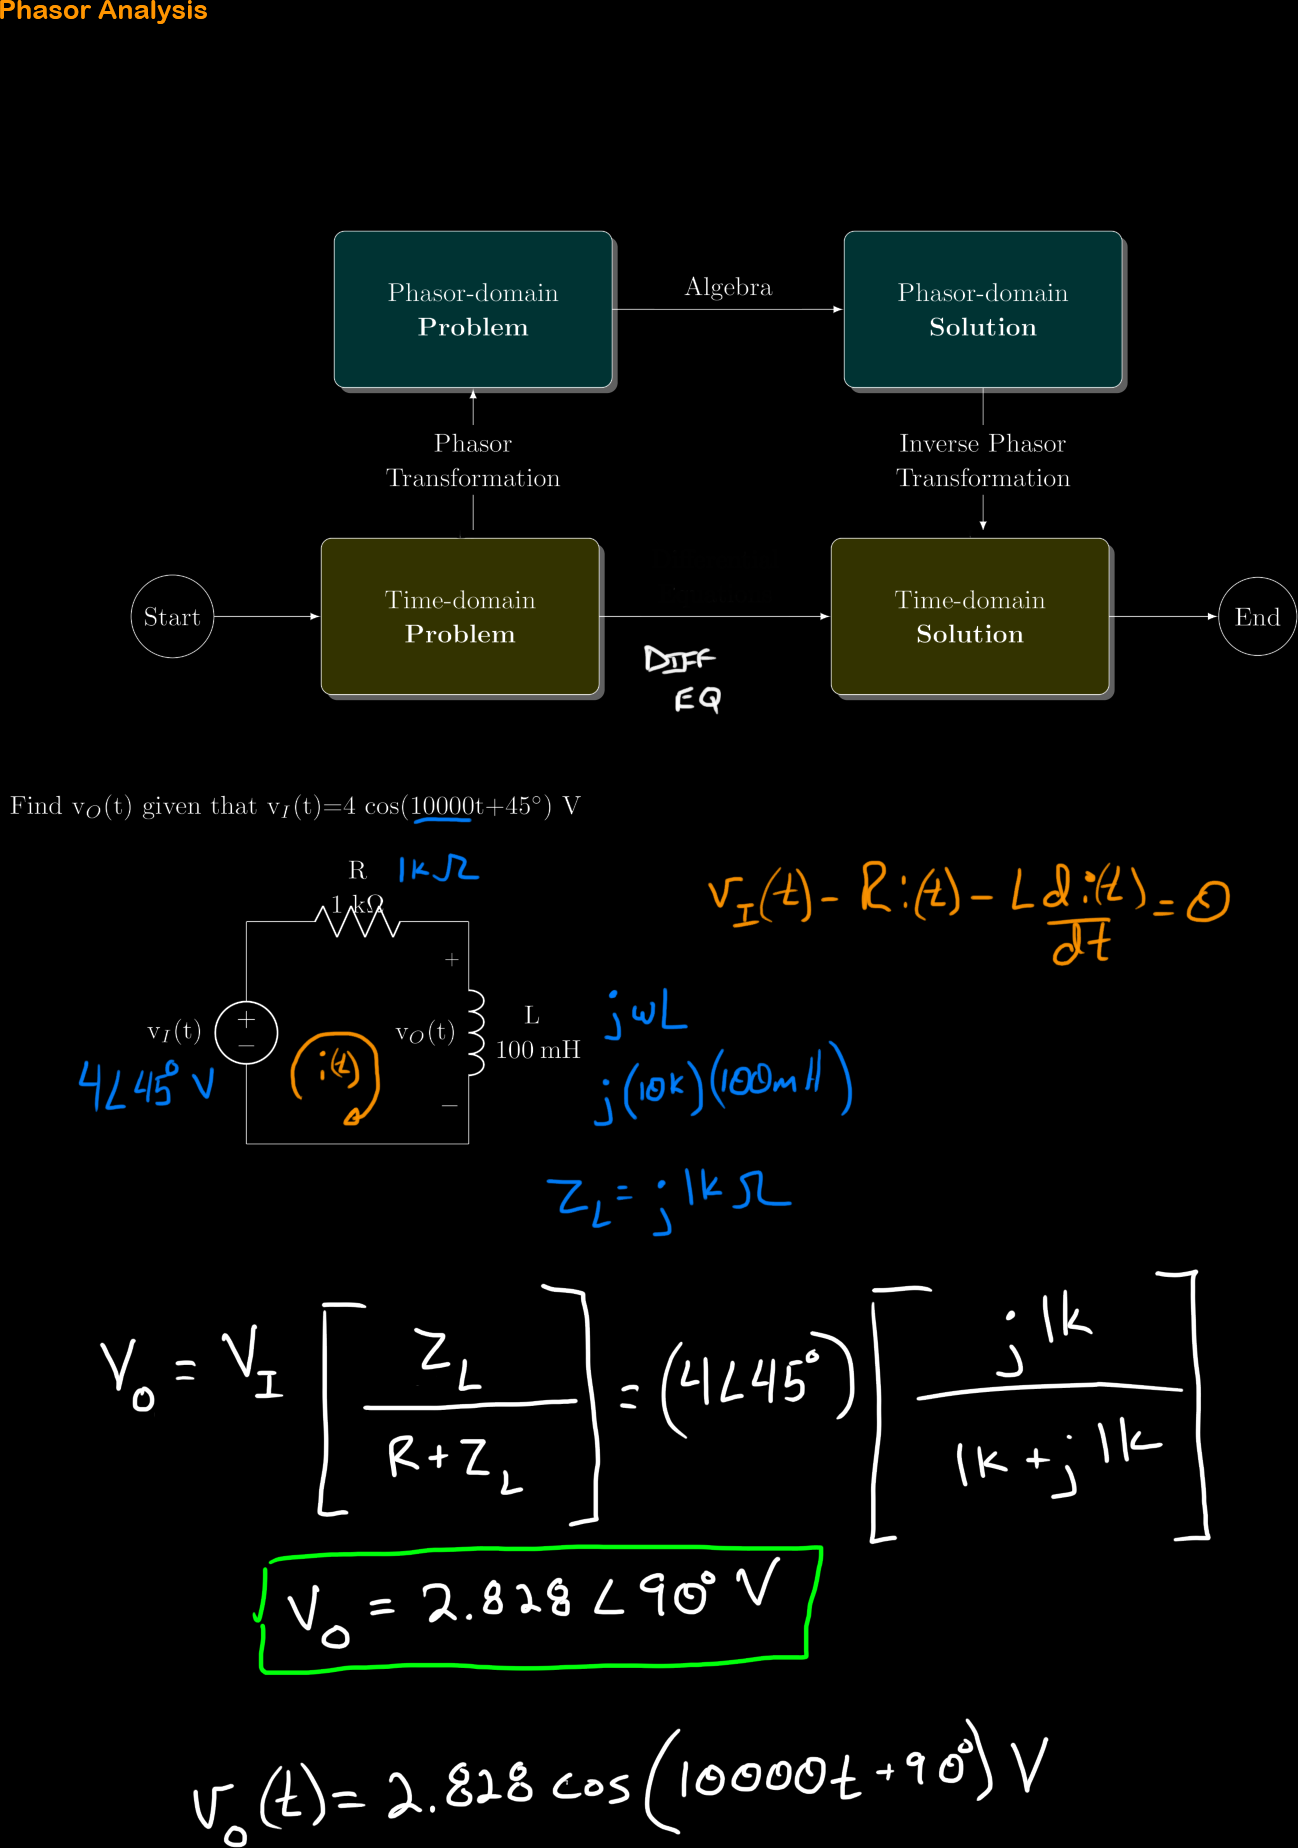 Phasor Analysis
Phasor-domain
Problem
Algebra
Phasor-domain
Solution
Phasor
Transformation
Inverse Phasor
Transformation
Start
Time-domain
Problem
DIFF
EQ
Time-domain
Solution
End
Find v_O(t) given that v_I(t)=4 cos(10000t+45°) V
R
1kΩ
1 kΩ
v_I(t) - R i(t) - L di(t)/dt = 0
+
v_I(t)
+
−
4∠45° V
i(t)
v_O(t)
−
L
100 mH
jωL
j(10k)(100mH)
Z_L = j1kΩ
V_o = V_I [Z_L / (R+Z_L)] = (4∠45°) [j1k / (1k + j1k)]
V_o = 2.828 ∠90° V
v_o(t) = 2.828 cos(10000t + 90°) V